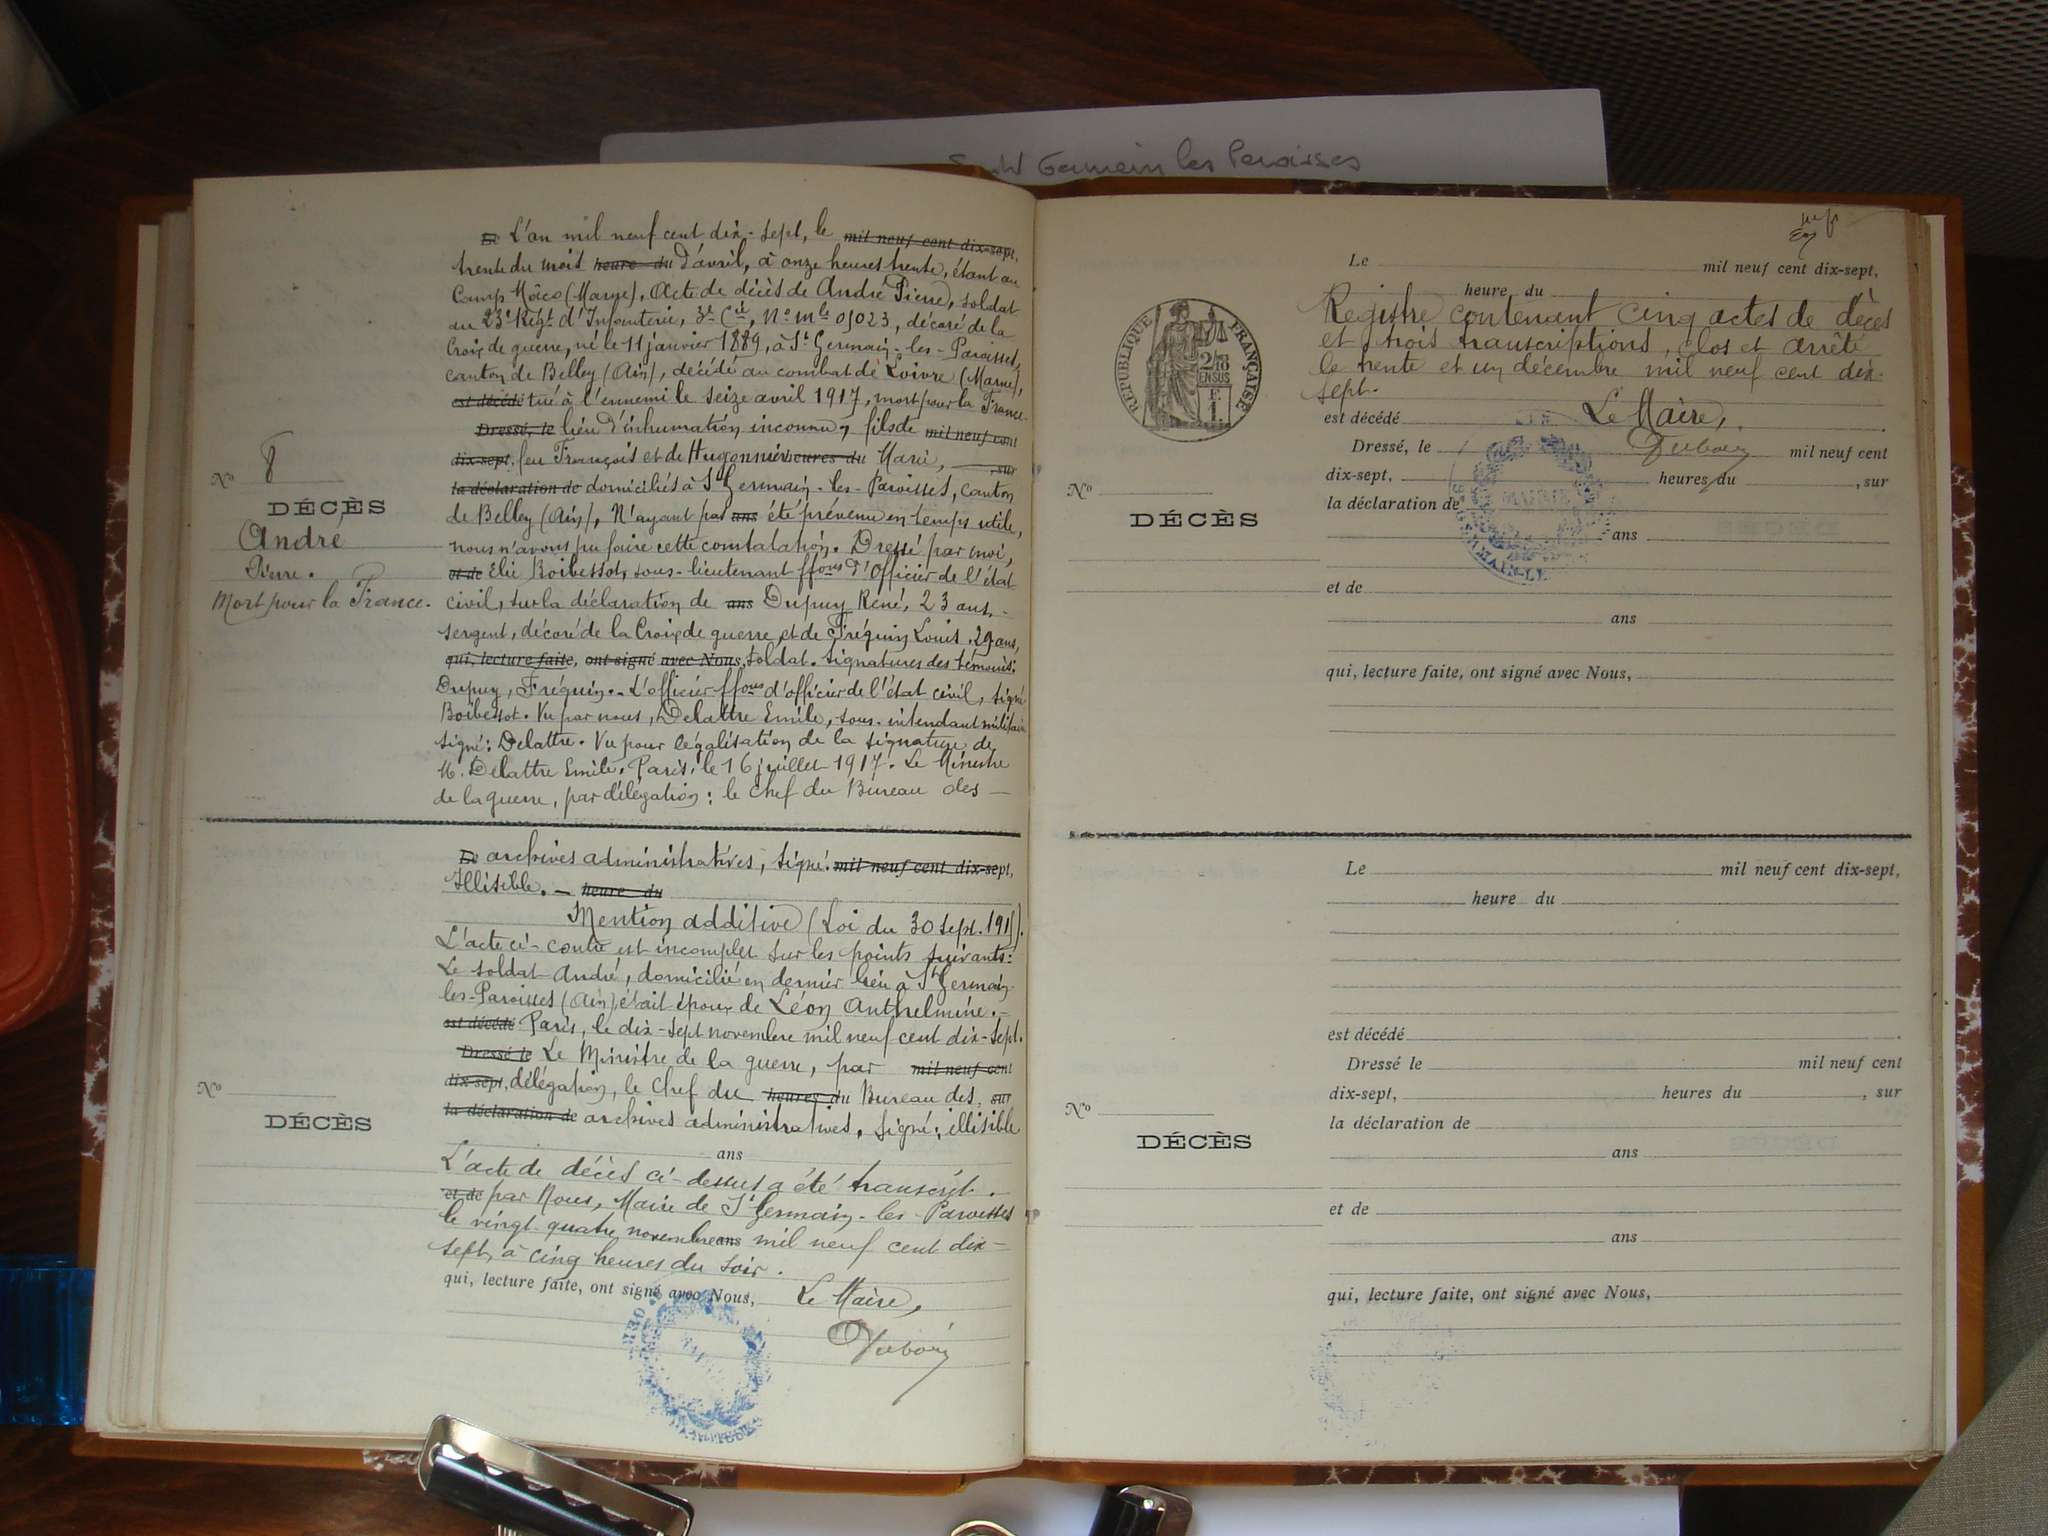 Germain les Paroisses
L'an mil neuf cent dix-sept, le mil neuf cent dix-sept,
trente du mois heure du d'avril, à onze heures trente, étant au
Camp (Marne), Acte de décès de André Pierre, soldat
au 23e Régt d'Infanterie, 3e Cie, No Mle 05023, décoré de la
Croix de guerre, né le 11 janvier 1889, à St Germain-les-Paroisses,
canton de Belley (Ain), décédé au combat de Loivre (Marne),
est décédé tué à l'ennemi le seize avril 1917, mort pour la France.
Dressé, le lieu d'inhumation inconnu, fils de mil neuf cent
dix-sept, feu François et de Hugonnier heures du Marie, sur
la déclaration de domiciliés à St Germain-les-Paroisses, canton
de Belley (Ain), N'ayant pas ans été prévenu en temps utile,
nous n'avons pu faire cette constatation. Dressé par moi,
et de Elie Boibessot, sous-lieutenant ffons d'Officier de l'état
civil, sur la déclaration de ans Dupuy René, 23 ans,
sergent, décoré de la Croix de guerre et de Fréquin Louis, 29 ans,
qui, lecture faite, ont signé avec Nous, soldat. Signatures des témoins:
Dupuy, Fréquin. - L'officier ffons d'officier de l'état civil, signé
Boibessot. Vu par nous, Delattre Emile, sous-intendant militaire
signé: Delattre. Vu pour légalisation de la signature de
M. Delattre Emile. Paris, le 16 juillet 1917. Le Ministre
de la guerre, par délégation: le Chef du Bureau des —
No 8
DÉCÈS
André
Pierre.
Mort pour la France.
Le archives administratives, signé: mil neuf cent dix-sept,
Illisible. — heure du
Mention additive (Loi du 30 Sept. 1915).
L'acte ci-contre est incomplet sur les points suivants:
Le soldat André, domicilié en dernier lieu à St Germain-
les-Paroisses (Ain), était époux de Léon Anthelmine. -
est décédé Paris, le dix-sept novembre mil neuf cent dix-sept.
Dressé le Le Ministre de la guerre, par mil neuf cent
dix-sept, délégation, le Chef du heures du Bureau des, sur
la déclaration de archives administratives. Signé: illisible
ans
L'acte de décès ci-dessus a été transcrit
et de par Nous, Maire de St Germain-les-Paroisses
le vingt-quatre novembre ans mil neuf cent dix-
sept, à cinq heures du soir.
qui, lecture faite, ont signé avec Nous, Le Maire,
No
DÉCÈS
Le mil neuf cent dix-sept,
heure du
Registre contenant cinq actes de décès
et trois transcriptions, clos et arrêté
le trente et un décembre mil neuf cent dix-
sept.
RÉPUBLIQUE FRANÇAISE
2/10
EN SUS
F
1.
est décédé Le Maire,
Dressé, le mil neuf cent
dix-sept, heures du , sur
la déclaration de
MAIRIE
ans
et de
ans
qui, lecture faite, ont signé avec Nous,
No
DÉCÈS
Le mil neuf cent dix-sept,
heure du
est décédé
Dressé le mil neuf cent
dix-sept, heures du , sur
la déclaration de
ans
et de
ans
qui, lecture faite, ont signé avec Nous,
No
DÉCÈS